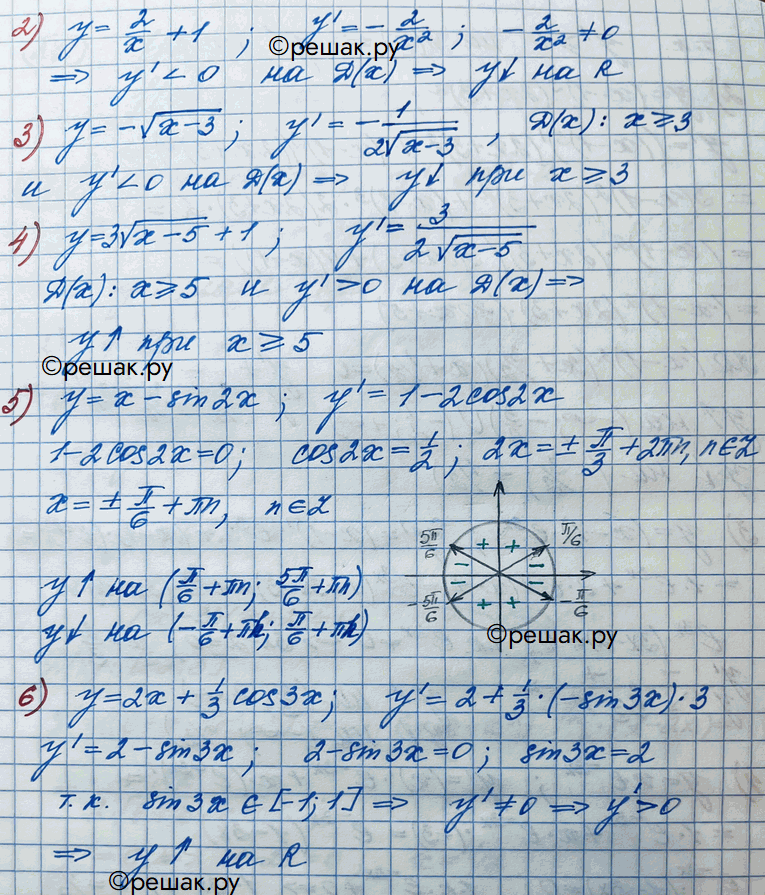 2) y = 2/x + 1 ; y' = - 2/x² ; - 2/x² ≠ 0
©решак.ру
=> y' < 0 на D(x) => y↓ на R
3) y = -√(x-3) ; y' = - 1/(2√(x-3)) , D(x): x ≥ 3
и y' < 0 на D(x) => y↓ при x ≥ 3
4) y = 3√(x-5) + 1 ; y' = 3/(2√(x-5))
D(x): x ≥ 5 и y' > 0 на D(x) =>
y↑ при x ≥ 5
©решак.ру
5) y = x - sin2x ; y' = 1 - 2cos2x
1 - 2cos2x = 0 ; cos2x = 1/2 ; 2x = ± π/3 + 2πn, n∈Z
x = ± π/6 + πn, n∈Z
5π/6 + + π/6
- -
y↑ на (π/6 + πn; 5π/6 + πn)
- -
-5π/6 + + -π/6
y↓ на (-π/6 + πk; π/6 + πk)
©решак.ру
6) y = 2x + 1/3 cos3x ; y' = 2 + 1/3 · (-sin3x) · 3
y' = 2 - sin3x ; 2 - sin3x = 0 ; sin3x = 2
т.к. sin3x ∈ [-1; 1] => y' ≠ 0 => y' > 0
=> y↑ на R
©решак.ру